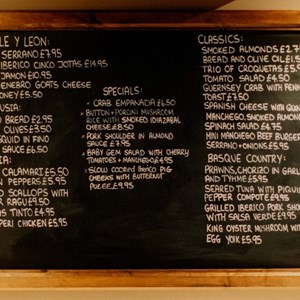 LE Y LEON:
SERRANO £7.95
IBERICO CINCO JOTAS £14.95
JAMON £10.95
ENEBRO GOATS CHEESE
ONEY £5.50
USIA:
D BREAD £2.95
OLIVES £3.50
SQUID IN FINO
SAUCE £6.50
IA
CALAMARI £5.50
N PEPPERS £5.95
D SCALLOPS WITH
R RAGU £9.50
AS TINTO £4.95
PERI CHICKEN £5.95
SPECIALS:
✓ CRAB EMPANADA £6.50
BUTTON + PORCINI MUSHROOM
RICE WITH SMOKED IDIAZABAL
CHEESE £8.50
PORK SHOULDER IN ALMOND
SAUCE £7.95
BABY GEM SALAD WITH CHERRY
TOMATOES + MANCHEGO £4.95
SLOW COOKED IBERICO PIG
CHEEKS WITH BUTTERNUT
PUREE £9.95
CLASSICS:
SMOKED ALMONDS £2.7
BREAD AND OLIVE OIL £1.5
TRIO OF CROQUETAS £5.
TOMATO SALAD £4.50
GUERNSEY CRAB WITH FENN
TOAST £7.50
SPANISH CHEESE WITH QUIN
MANCHEGO, SMOKED ALMON
SPINACH SALAD £4.75
MINI MANCHEGO BEEF BURGE
SERRANO + ONIONS £5.95
BASQUE COUNTRY:
PRAWNS, CHORIZO IN GARLI
AND THYME £5.95
SEARED TUNA WITH PIQUIL
PEPPER COMPOTE £9.95
GRILLED IBERICO PORK SHO
WITH SALSA VERDE £9.95
KING OYSTER MUSHROOM WITH
EGG YOLK £5.95